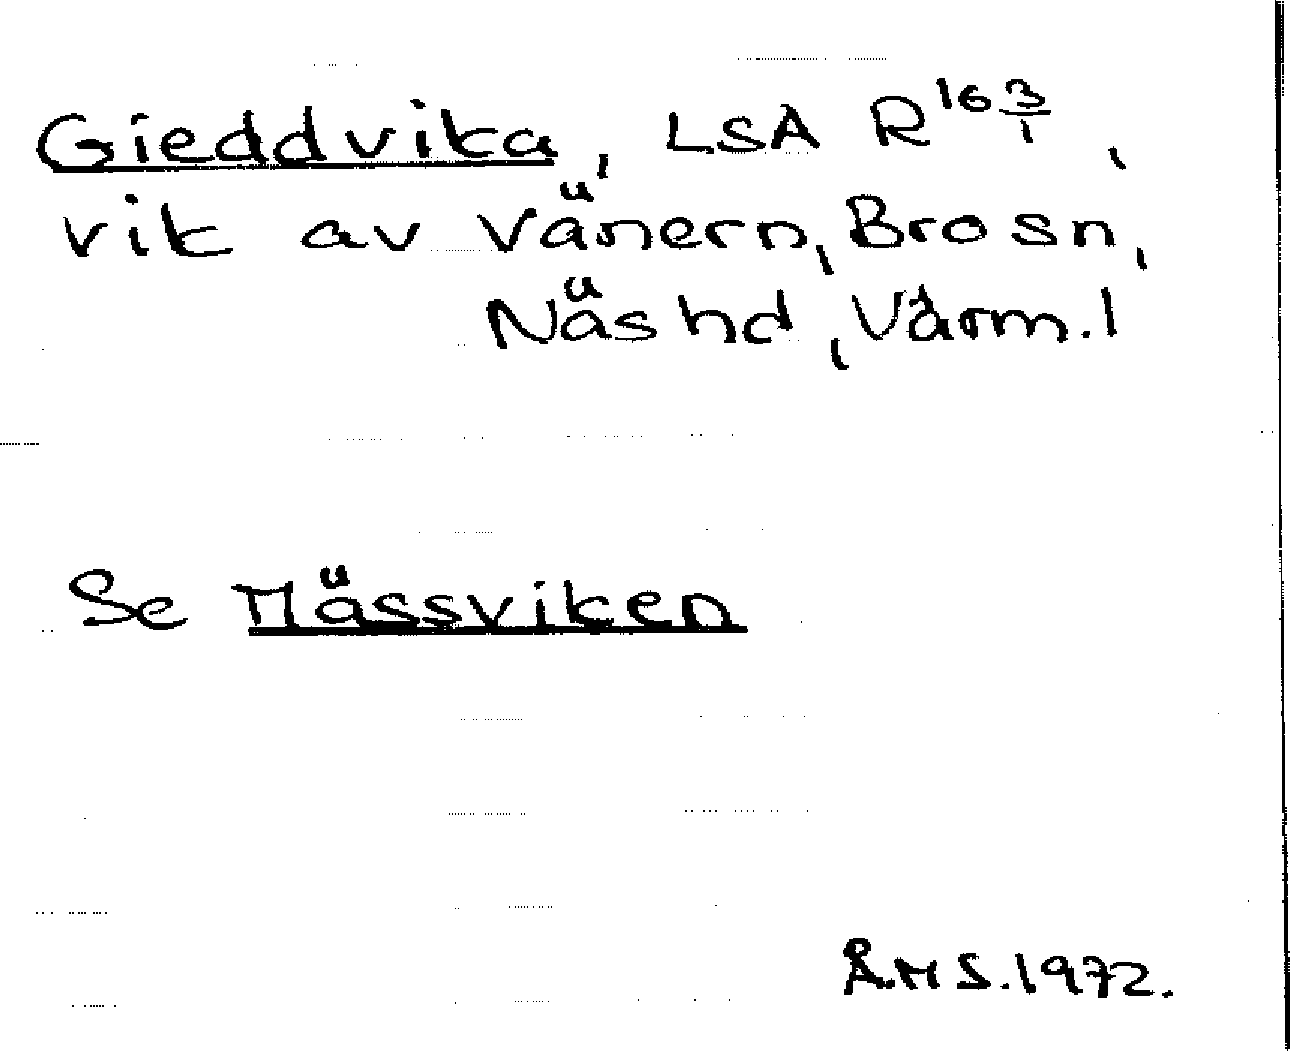 Gieddvika, LSA R16 3/1,
vik av Vänern, Bro sn,
Näs hd, Värm. l
Se Mässviken
Å.M S. 1972.